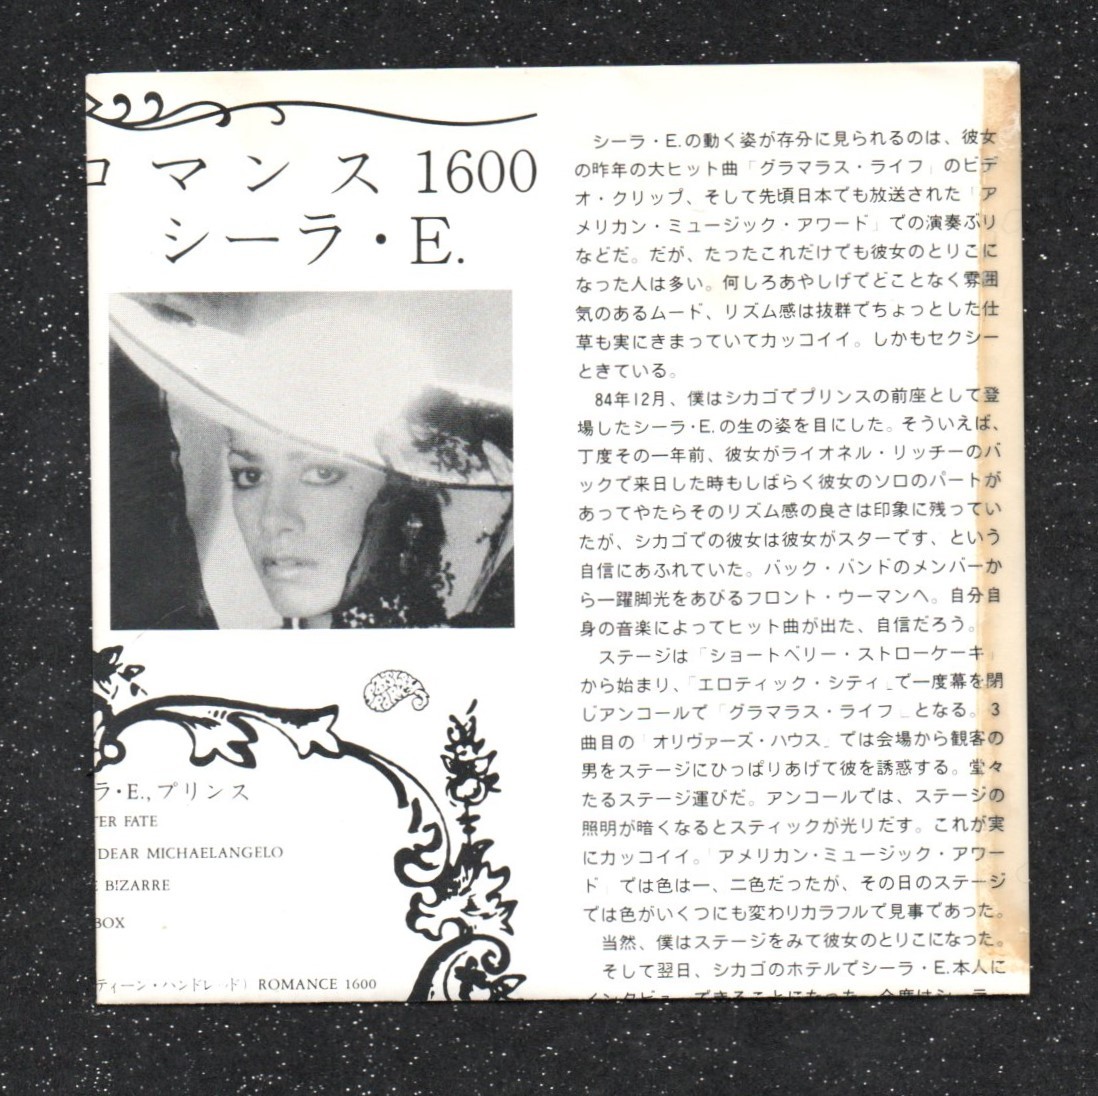 ロマンス 1600
シーラ・E.
ラ・E., プリンス
TER FATE
DEAR MICHAELANGELO
E B!ZARRE
BOX
ティーン・ハンドレッド) ROMANCE 1600
シーラ・E.の動く姿が存分に見られるのは、彼女
の昨年の大ヒット曲「グラマラス・ライフ」のビデ
オ・クリップ、そして先頃日本でも放送された「ア
メリカン・ミュージック・アワード」での演奏ぶり
などだ。だが、たったこれだけでも彼女のとりこに
なった人は多い。何しろあやしげでどことなく雰囲
気のあるムード、リズム感は抜群でちょっとした仕
草も実にきまっていてカッコイイ。しかもセクシー
ときている。
84年12月、僕はシカゴでプリンスの前座として登
場したシーラ・E.の生の姿を目にした。そういえば、
丁度その一年前、彼女がライオネル・リッチーのバ
ックで来日した時もしばらく彼女のソロのパートが
あってやたらそのリズム感の良さは印象に残ってい
たが、シカゴでの彼女は彼女がスターです、という
自信にあふれていた。バック・バンドのメンバーか
ら一躍脚光をあびるフロント・ウーマンへ。自分自
身の音楽によってヒット曲が出た、自信だろう。
ステージは「ショートベリー・ストローケーキ」
から始まり、「エロティック・シティ」で一度幕を閉
じアンコールで「グラマラス・ライフ」となる。3
曲目の「オリヴァーズ・ハウス」では会場から観客の
男をステージにひっぱりあげて彼を誘惑する。堂々
たるステージ運びだ。アンコールでは、ステージの
照明が暗くなるとスティックが光りだす。これが実
にカッコイイ。「アメリカン・ミュージック・アワー
ド」では色は一、二色だったが、その日のステージ
では色がいくつにも変わりカラフルで見事であった。
当然、僕はステージをみて彼女のとりこになった。
そして翌日、シカゴのホテルでシーラ・E.本人に